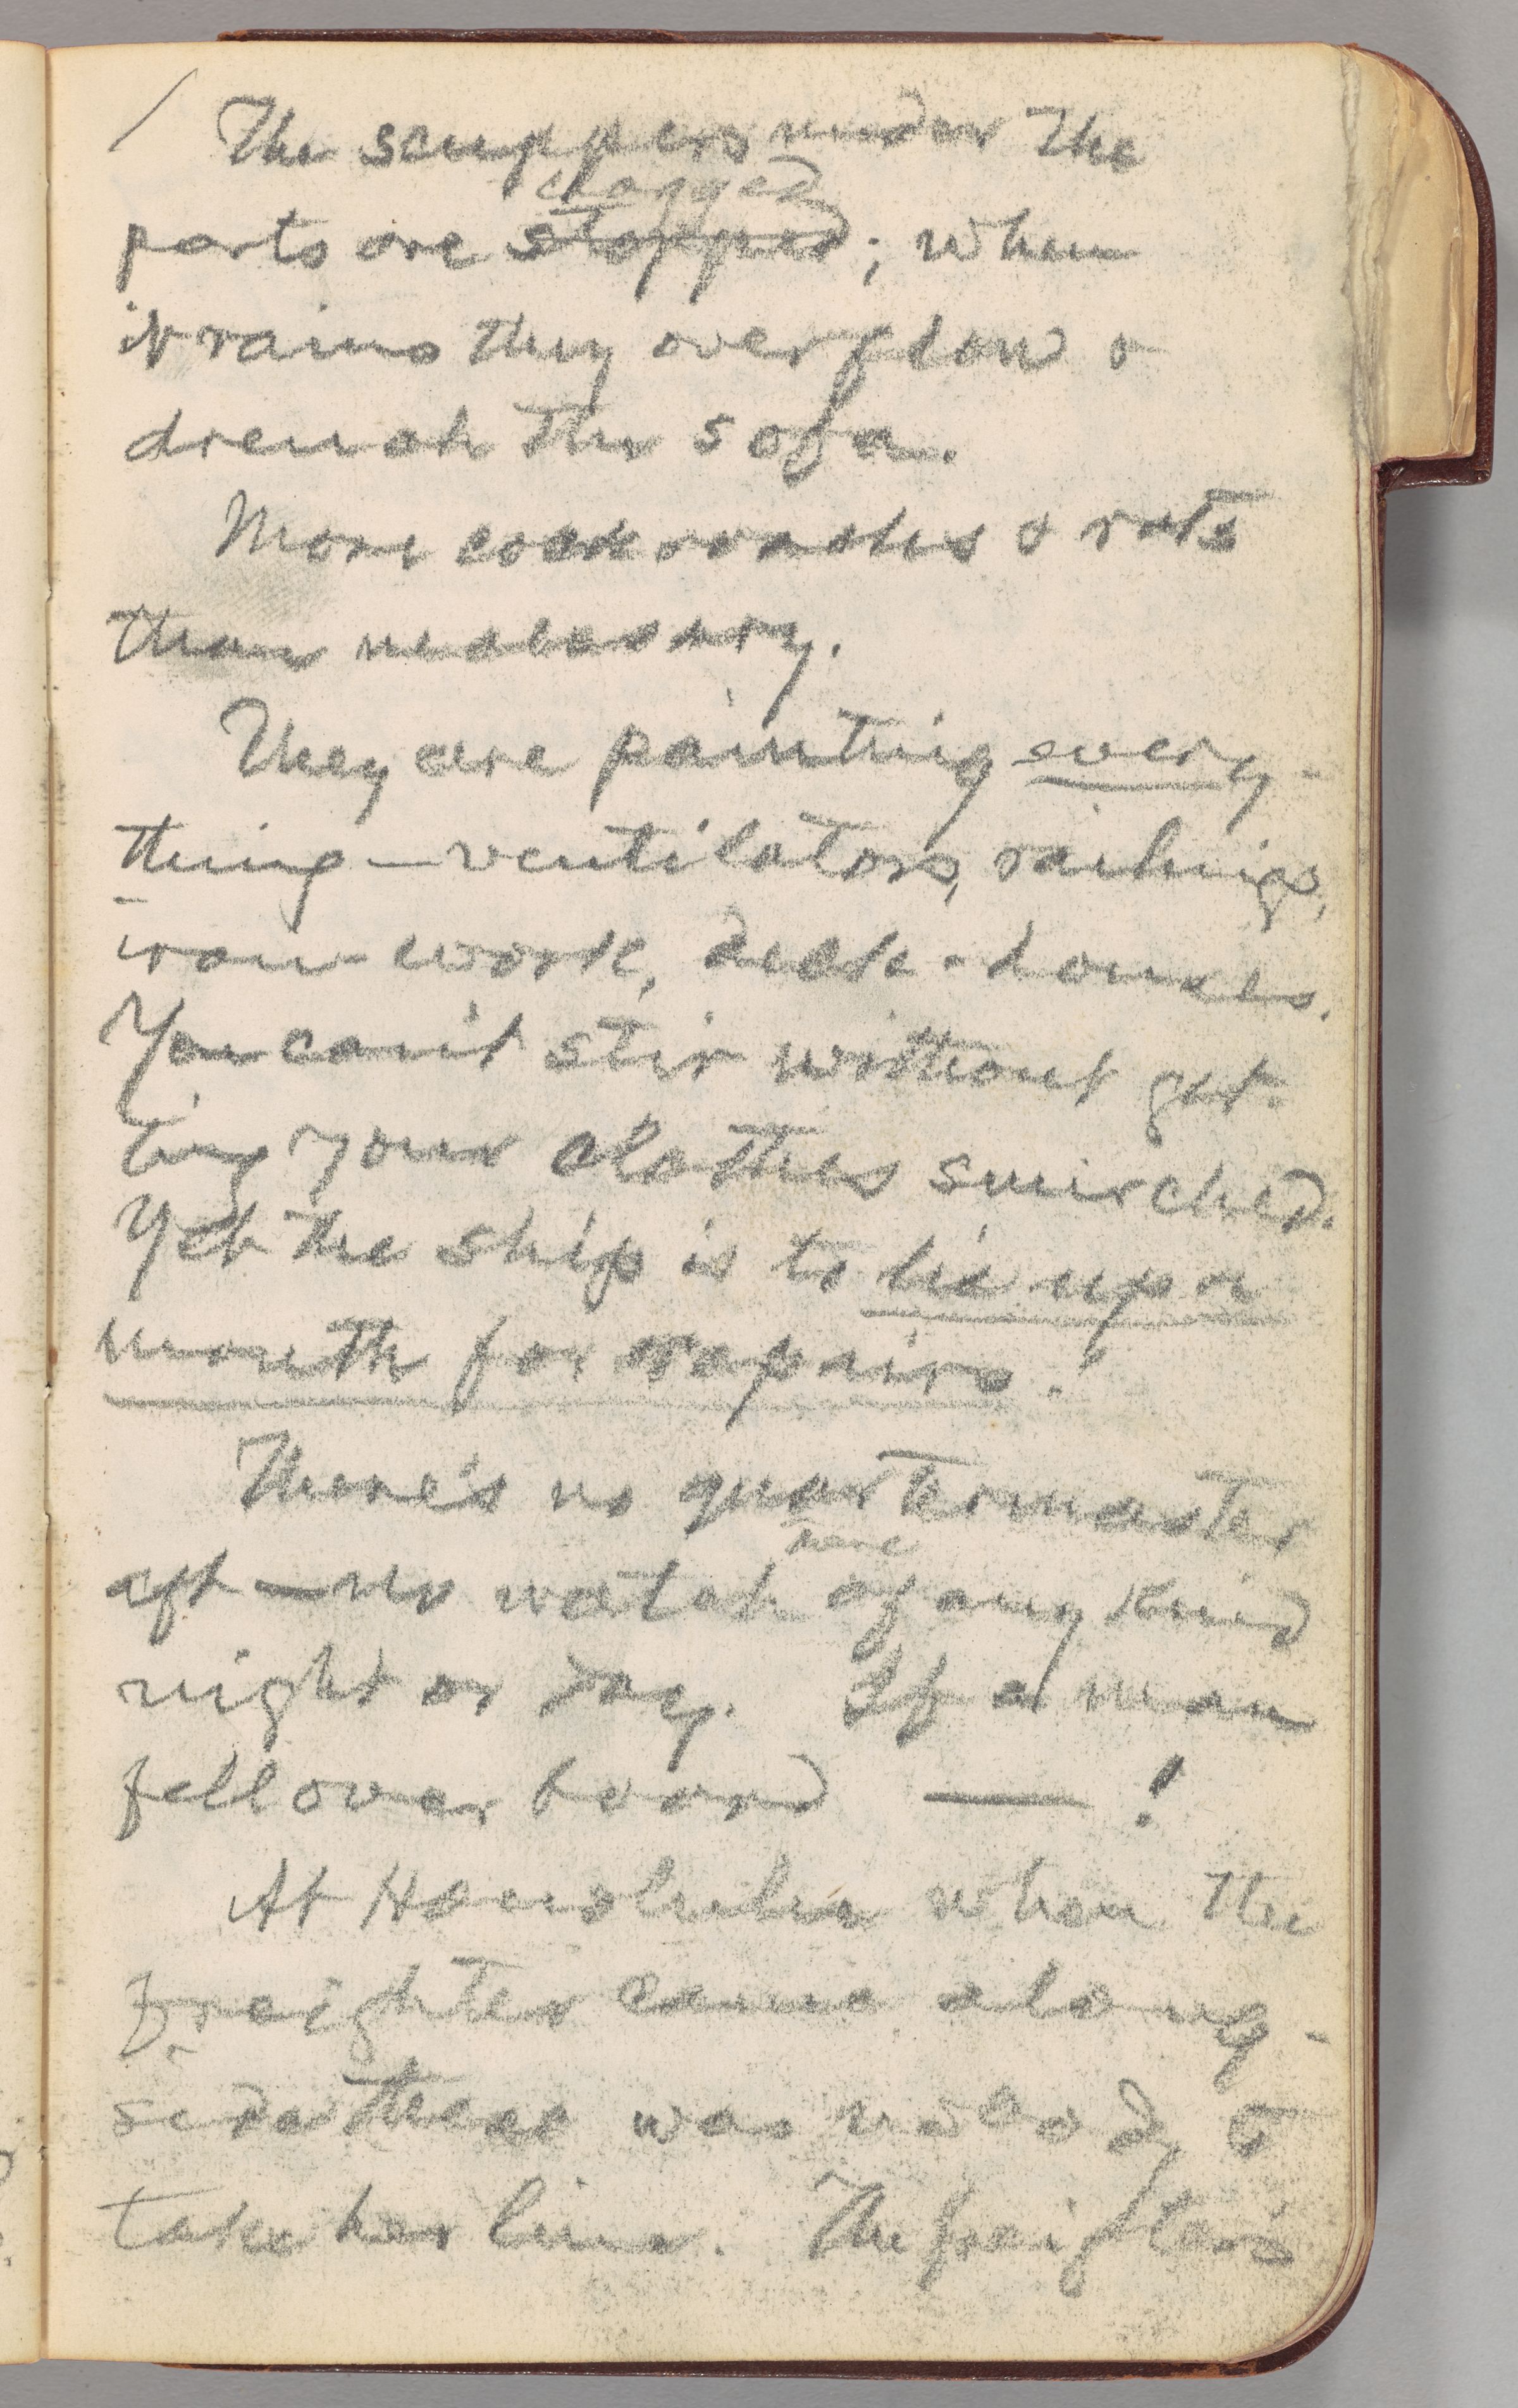 The scuppers under the
clogged
ports are stopped; when
it rains they overflow &
drench the sofa.
More cockroaches & rats
than necessary.
They are painting every-
thing — ventilators, railings,
iron-work, deck-houses.
You can't stir without get-
ting your clothes smirched.
Yet the ship is to lie up a
month for repairs!
There's no quartermaster
here
aft — no watch of any kind
night or day. If a man
fell overboard — !
At Honolulu when the
freighter came along-
side there was nobody to
take her line. The freighter's